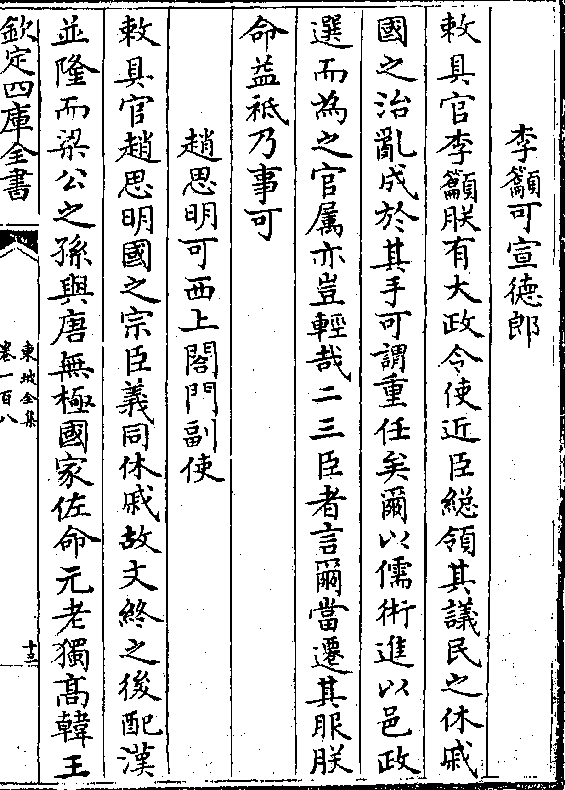 李籲可宣德郎
敕具官李籲朕有大政令使近臣總領其議民之休戚
國之治亂成於其手可謂重任矣爾以儒術進以邑政
選而為之官属亦豈輕哉二三臣者言爾當遷其服朕
命益祗乃事可
趙思明可西上閤門副使
敕具官趙思明國之宗臣義同休戚故文終之後配漢
並隆而梁公之孫與唐無極國家佐命元老獨髙韓王
欽定四庫全書
東坡全集
卷一百八
十三